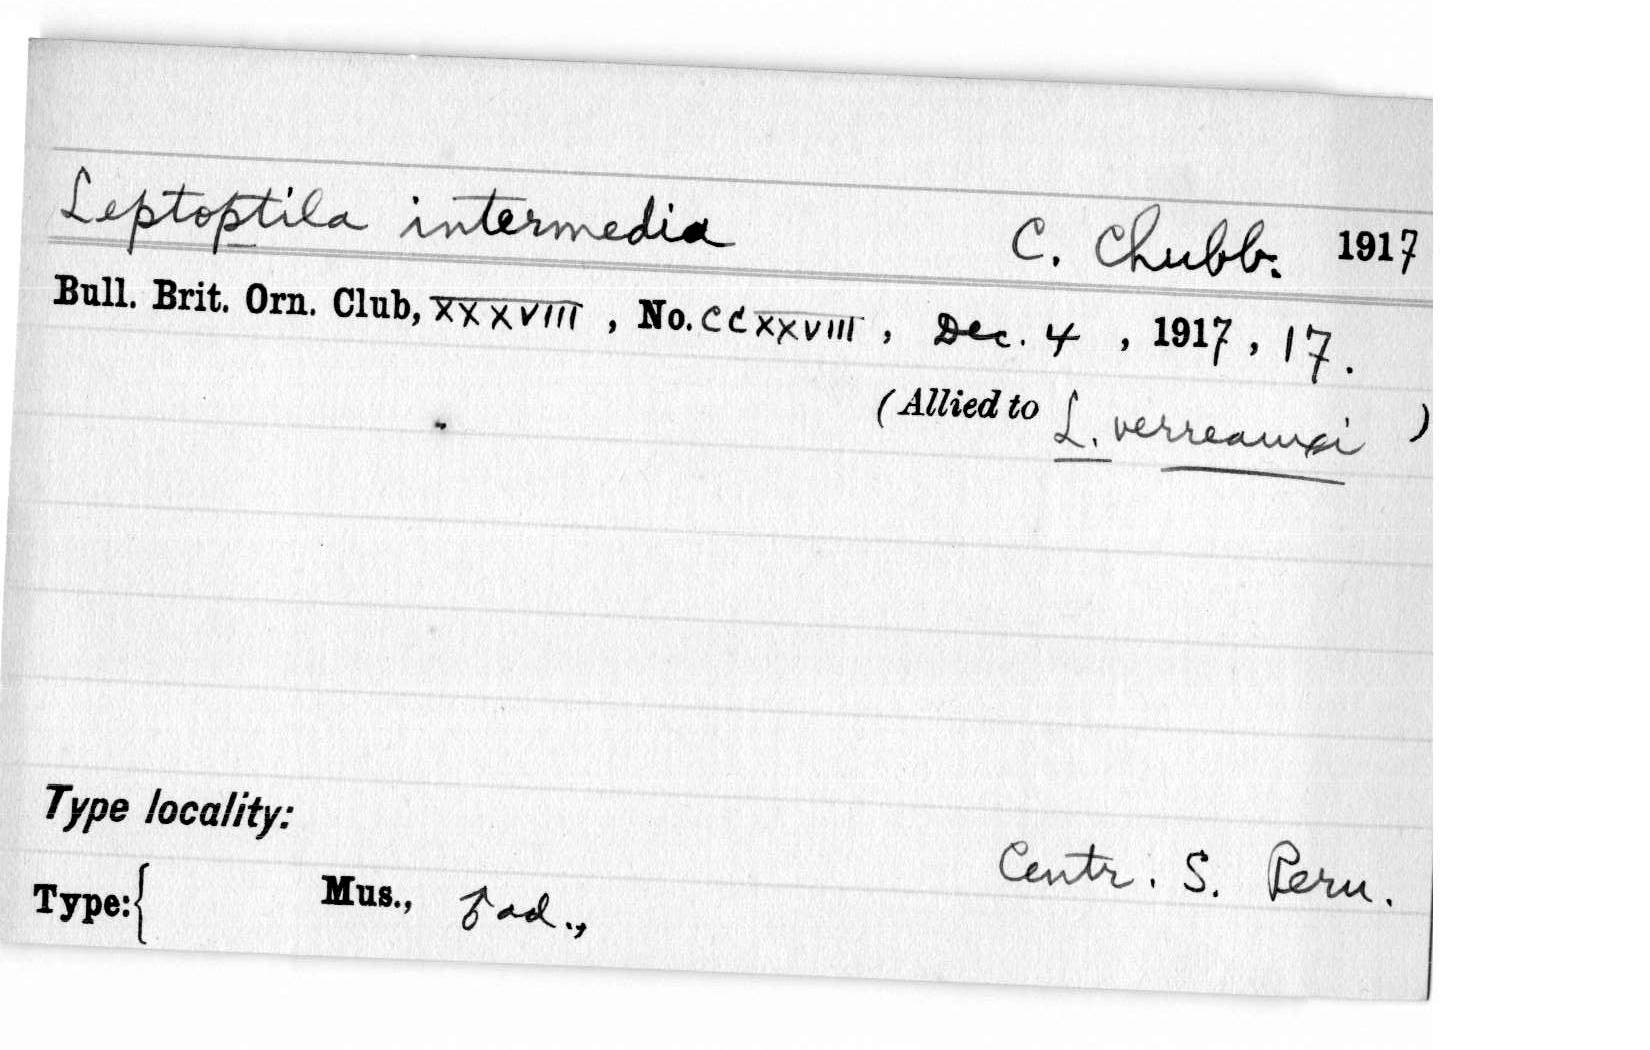 Leptoptila intermedia C. Chubb. 1917
Bull. Brit. Orn. Club, XXXVIII, No. CCXXVIII, Dec. 4, 1917, 17.
(Allied to L. verreauxi)
Type locality:
Centr. S. Peru.
Type:{ Mus., ♂ ad.,